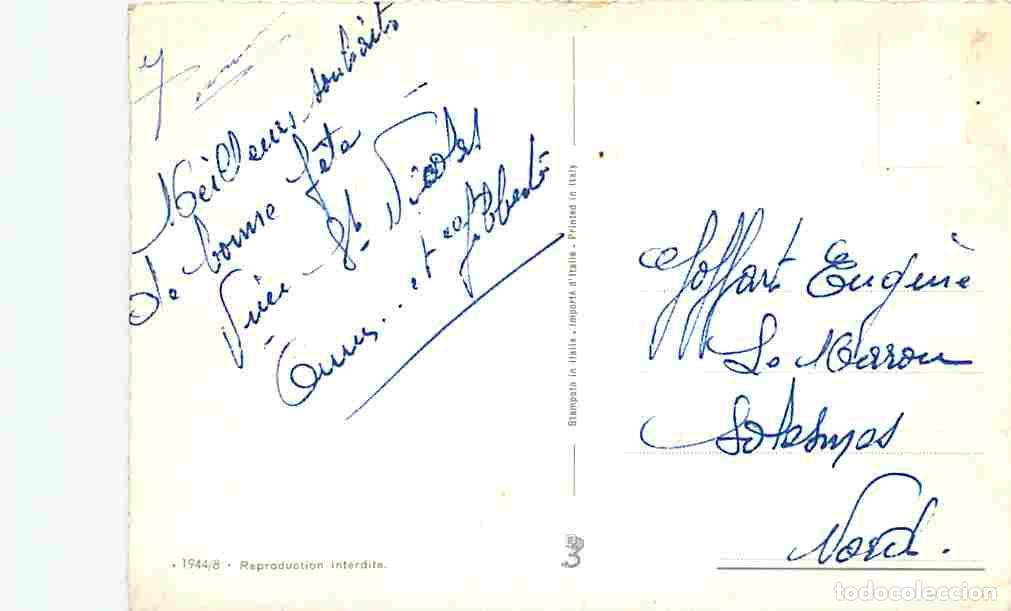 Meilleurs souhaits
de bonne fête
St. Nicolas
et
Stampato in Italia - Importé d'Italie - Printed in Italy
Goffart Eugène
Le Marrou
Solesmes
Nord.
1944/8 - Reproduction interdite.
todocoleccion.net